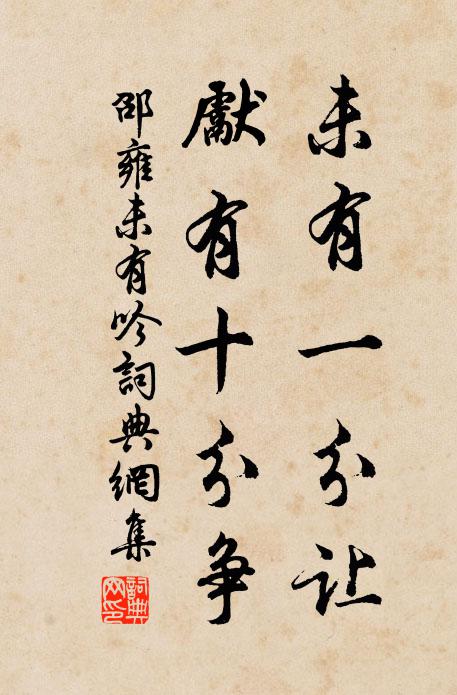 未有一分让
獻有十分争
邵雍未有吟詞典網集
詞典
网印